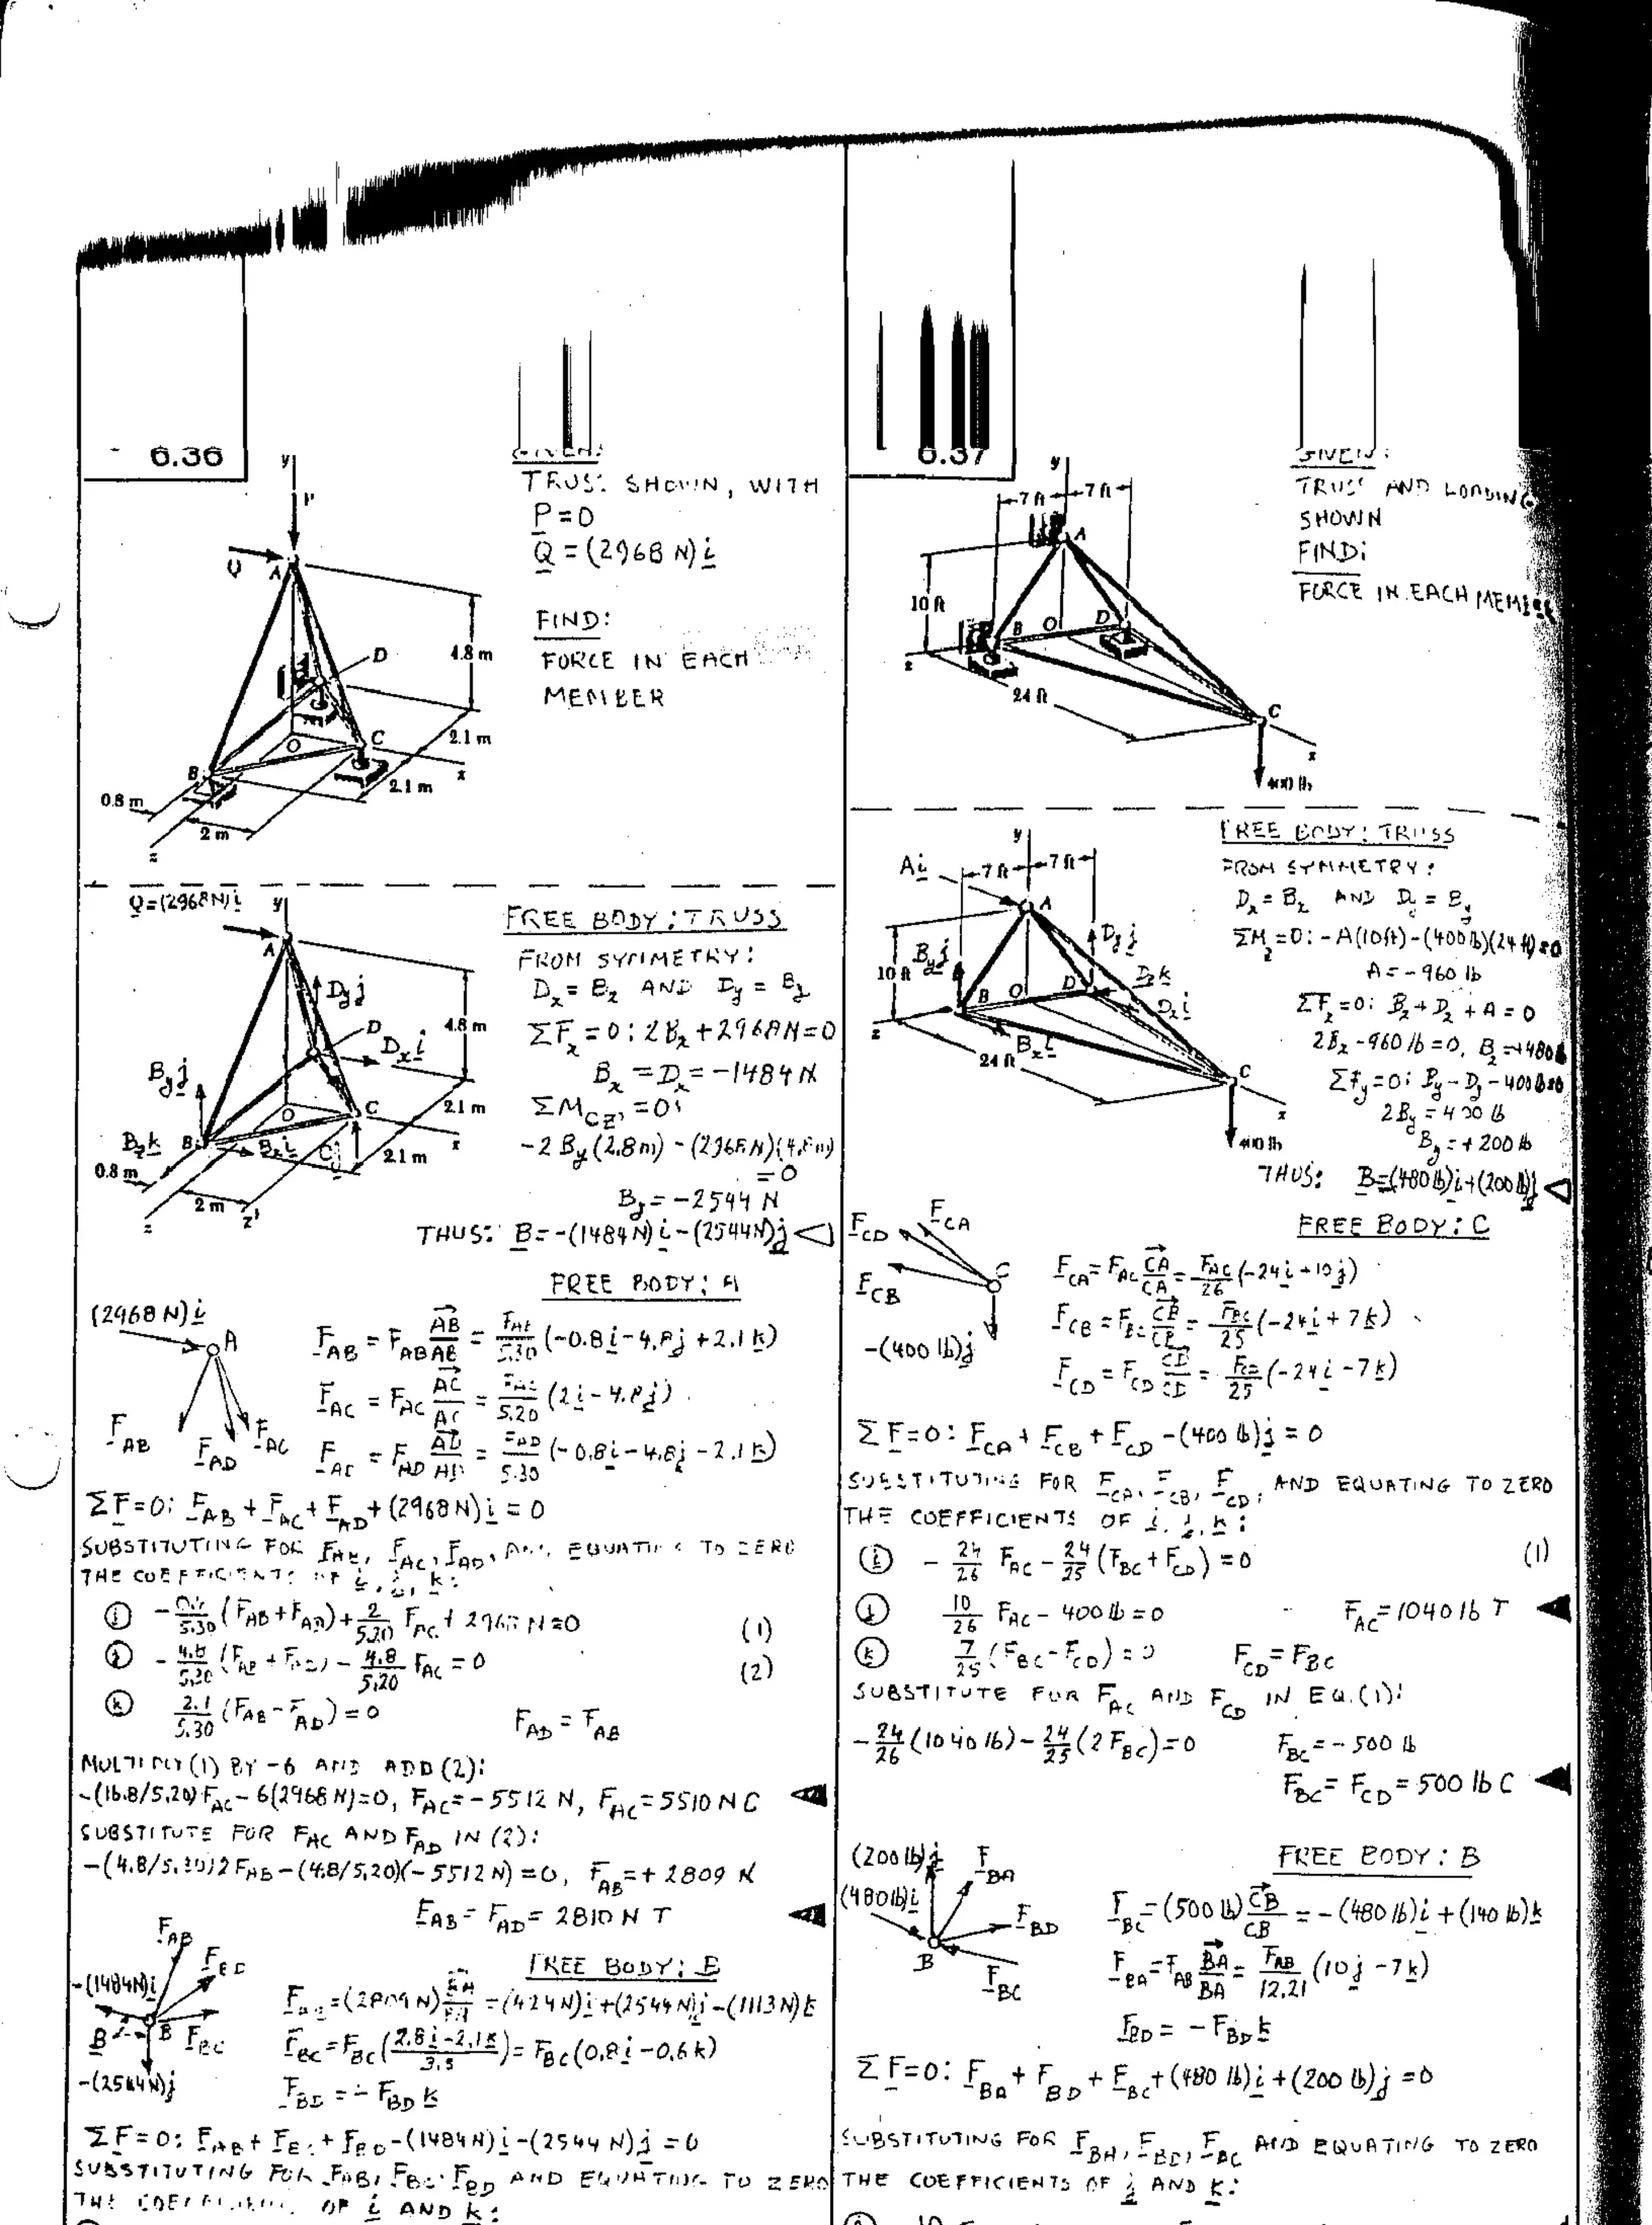 6.36
GIVEN:
TRUSS SHOWN, WITH
P = 0
Q = (2968 N) i
FIND:
FORCE IN EACH
MEMBER
y
P
Q
A
D
4.8 m
O
C
2.1 m
B
x
2.1 m
0.8 m
2 m
z
Q=(2968N)i
y
A
Dy j
D
Dx i
4.8 m
By j
O
C
2.1 m
Bz k
B
Bx i
Cj
x
2.1 m
0.8 m
2 m
z'
z
FREE BODY: TRUSS
FROM SYMMETRY:
Dx = Bx AND Dy = By
ΣFx = 0: 2Bx + 2968N = 0
Bx = Dx = -1484 N
ΣM cz' = 0:
-2 By (2.8m) - (2968N)(4.8m)
= 0
By = -2544 N
THUS: B = -(1484N) i - (2544N) j
FREE BODY: A
(2968 N) i
A
F AB
F AD
F AC
F AB = F AB AB/AB = F AB/5.30 (-0.8 i - 4.8 j + 2.1 k)
F AC = F AC AC/AC = F AC/5.20 (2 i - 4.8 j)
= F AD AD/AD = F AD/5.30 (-0.8 i - 4.8 j - 2.1 k)
ΣF = 0: F AB + F AC + F AD + (2968 N) i = 0
SUBSTITUTING FOR F AB, F AC, F AD, AND EQUATING TO ZERO
THE COEFFICIENTS OF i, j, k:
ⓘ -0.8/5.30 (F AB + F AD) + 2/5.20 F AC + 2968 N = 0 (1)
ⓙ -4.8/5.30 (F AB + F AD) - 4.8/5.20 F AC = 0 (2)
ⓚ 2.1/5.30 (F AB - F AD) = 0 F AD = F AB
MULTIPLY (1) BY -6 AND ADD (2):
-(16.8/5.20) F AC - 6(2968 N) = 0, F AC = -5512 N, F AC = 5510 N C
SUBSTITUTE FOR F AC AND F AD IN (2):
-(4.8/5.30) 2 F AB - (4.8/5.20)(-5512 N) = 0, F AB = + 2809 N
F AB = F AD = 2810 N T
FREE BODY: B
F AB
F BD
-(1484N) i
B
B
F BC
-(2544N) j
= (2809 N) BA/BA = (424 N) i + (2544 N) j - (1113 N) k
F BC = F BC (2.8 i - 2.1 k/3.5) = F BC (0.8 i - 0.6 k)
F BD = - F BD k
ΣF = 0: F AB + F BC + F BD - (1484 N) i - (2544 N) j = 0
SUBSTITUTING FOR F AB, F BC, F BD AND EQUATING TO ZERO
THE COEFFICIENTS OF i AND k:
6.37
GIVEN:
TRUSS AND LOADING
SHOWN
FIND:
FORCE IN EACH MEMBER
y
7 ft
7 ft
A
10 ft
B
O
D
z
24 ft
C
x
400 lb
FREE BODY: TRUSS
FROM SYMMETRY:
Dx = Bx AND Dy = By
ΣMz = 0: -A(10ft) - (400 lb)(24 ft) = 0
A = -960 lb
ΣFx = 0: Bx + Dx + A = 0
2Bx - 960 lb = 0, Bx = +480 lb
ΣFy = 0: By - Dy - 400 lb = 0
2By = 400 lb
By = +200 lb
THUS: B = (480 lb) i + (200 lb) j
y
A i
7 ft
7 ft
A
Dy j
10 ft
By j
Dz k
B
O
D
Dx i
z
Bx i
24 ft
C
x
400 lb
FREE BODY: C
F CD
F CA
C
F CB
-(400 lb) j
F CA = F AC CA/CA = F AC/26 (-24 i + 10 j)
F CB = F BC CB/CB = F BC/25 (-24 i + 7 k)
F CD = F CD CD/CD = F CD/25 (-24 i - 7 k)
ΣF = 0: F CA + F CB + F CD - (400 lb) j = 0
SUBSTITUTING FOR F CA, F CB, F CD, AND EQUATING TO ZERO
THE COEFFICIENTS OF i, j, k:
ⓘ -24/26 F AC - 24/25 (F BC + F CD) = 0 (1)
ⓙ 10/26 F AC - 400 lb = 0 F AC = 1040 lb T
ⓚ 7/25 (F BC - F CD) = 0 F CD = F BC
SUBSTITUTE FOR F AC AND F CD IN EQ. (1):
-24/26 (1040 lb) - 24/25 (2 F BC) = 0 F BC = -500 lb
F BC = F CD = 500 lb C
FREE BODY: B
(200 lb) j
F BA
(480 lb) i
F BD
B
F BC
F BC = (500 lb) CB/CB = -(480 lb) i + (140 lb) k
F BA = F AB BA/BA = F AB/12.21 (10 j - 7 k)
F BD = - F BD k
ΣF = 0: F BA + F BD + F BC + (480 lb) i + (200 lb) j = 0
SUBSTITUTING FOR F BA, F BD, F BC AND EQUATING TO ZERO
THE COEFFICIENTS OF j AND k: